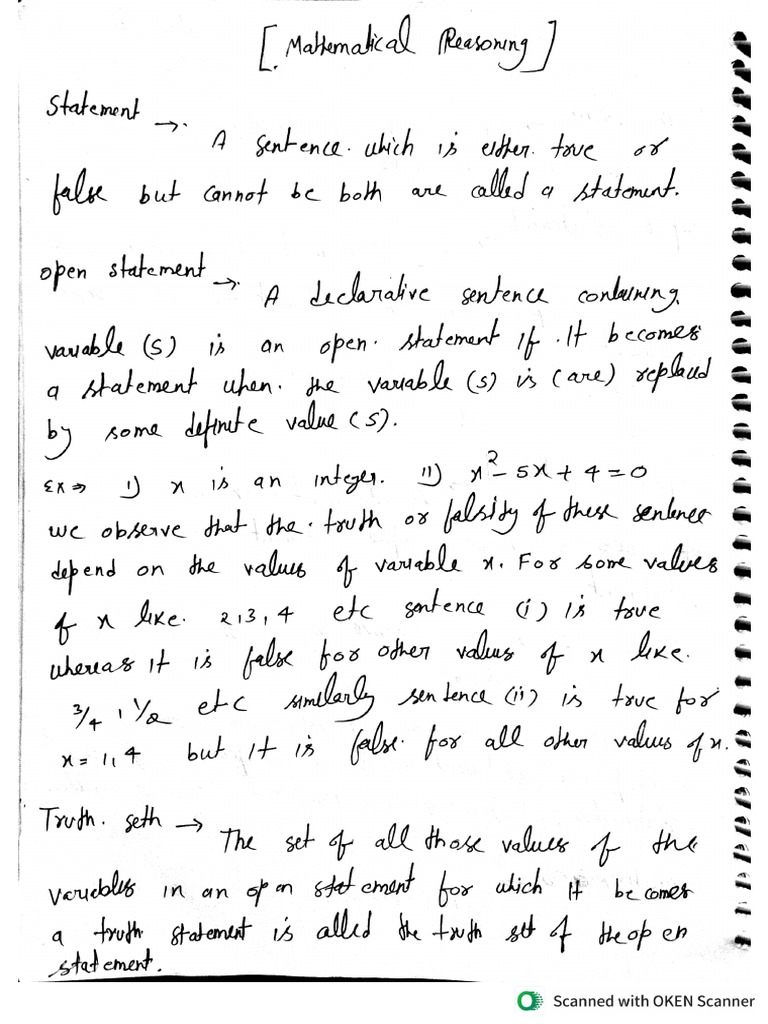 [Mathematical Reasoning]
Statement →.
A sentence. which is either. true or
false but cannot be both are called a statement.
open statement →.
A declarative sentence containing.
variable (s) is an open. statement if. It becomes
a statement when. the variable (s) is (are) replaced
by some definite value (s).
EX ⇒ i) x is an integer. ii) x² - 5x + 4 = 0
we observe that the. truth or falsity of these sentence
depend on the values of variable x. For some values
of x like. 2,3,4 etc sentence (i) is true
whereas it is false for other values of x like.
3/4, 1/2 etc similarly sentence (ii) is true for
x = 1,4 but it is false. for all other values of x.
Truth. seth →
The set of all those values of the
variables in an open statement for which it becomes
a truth statement is called the truth set of the open
statement.
Scanned with OKEN Scanner